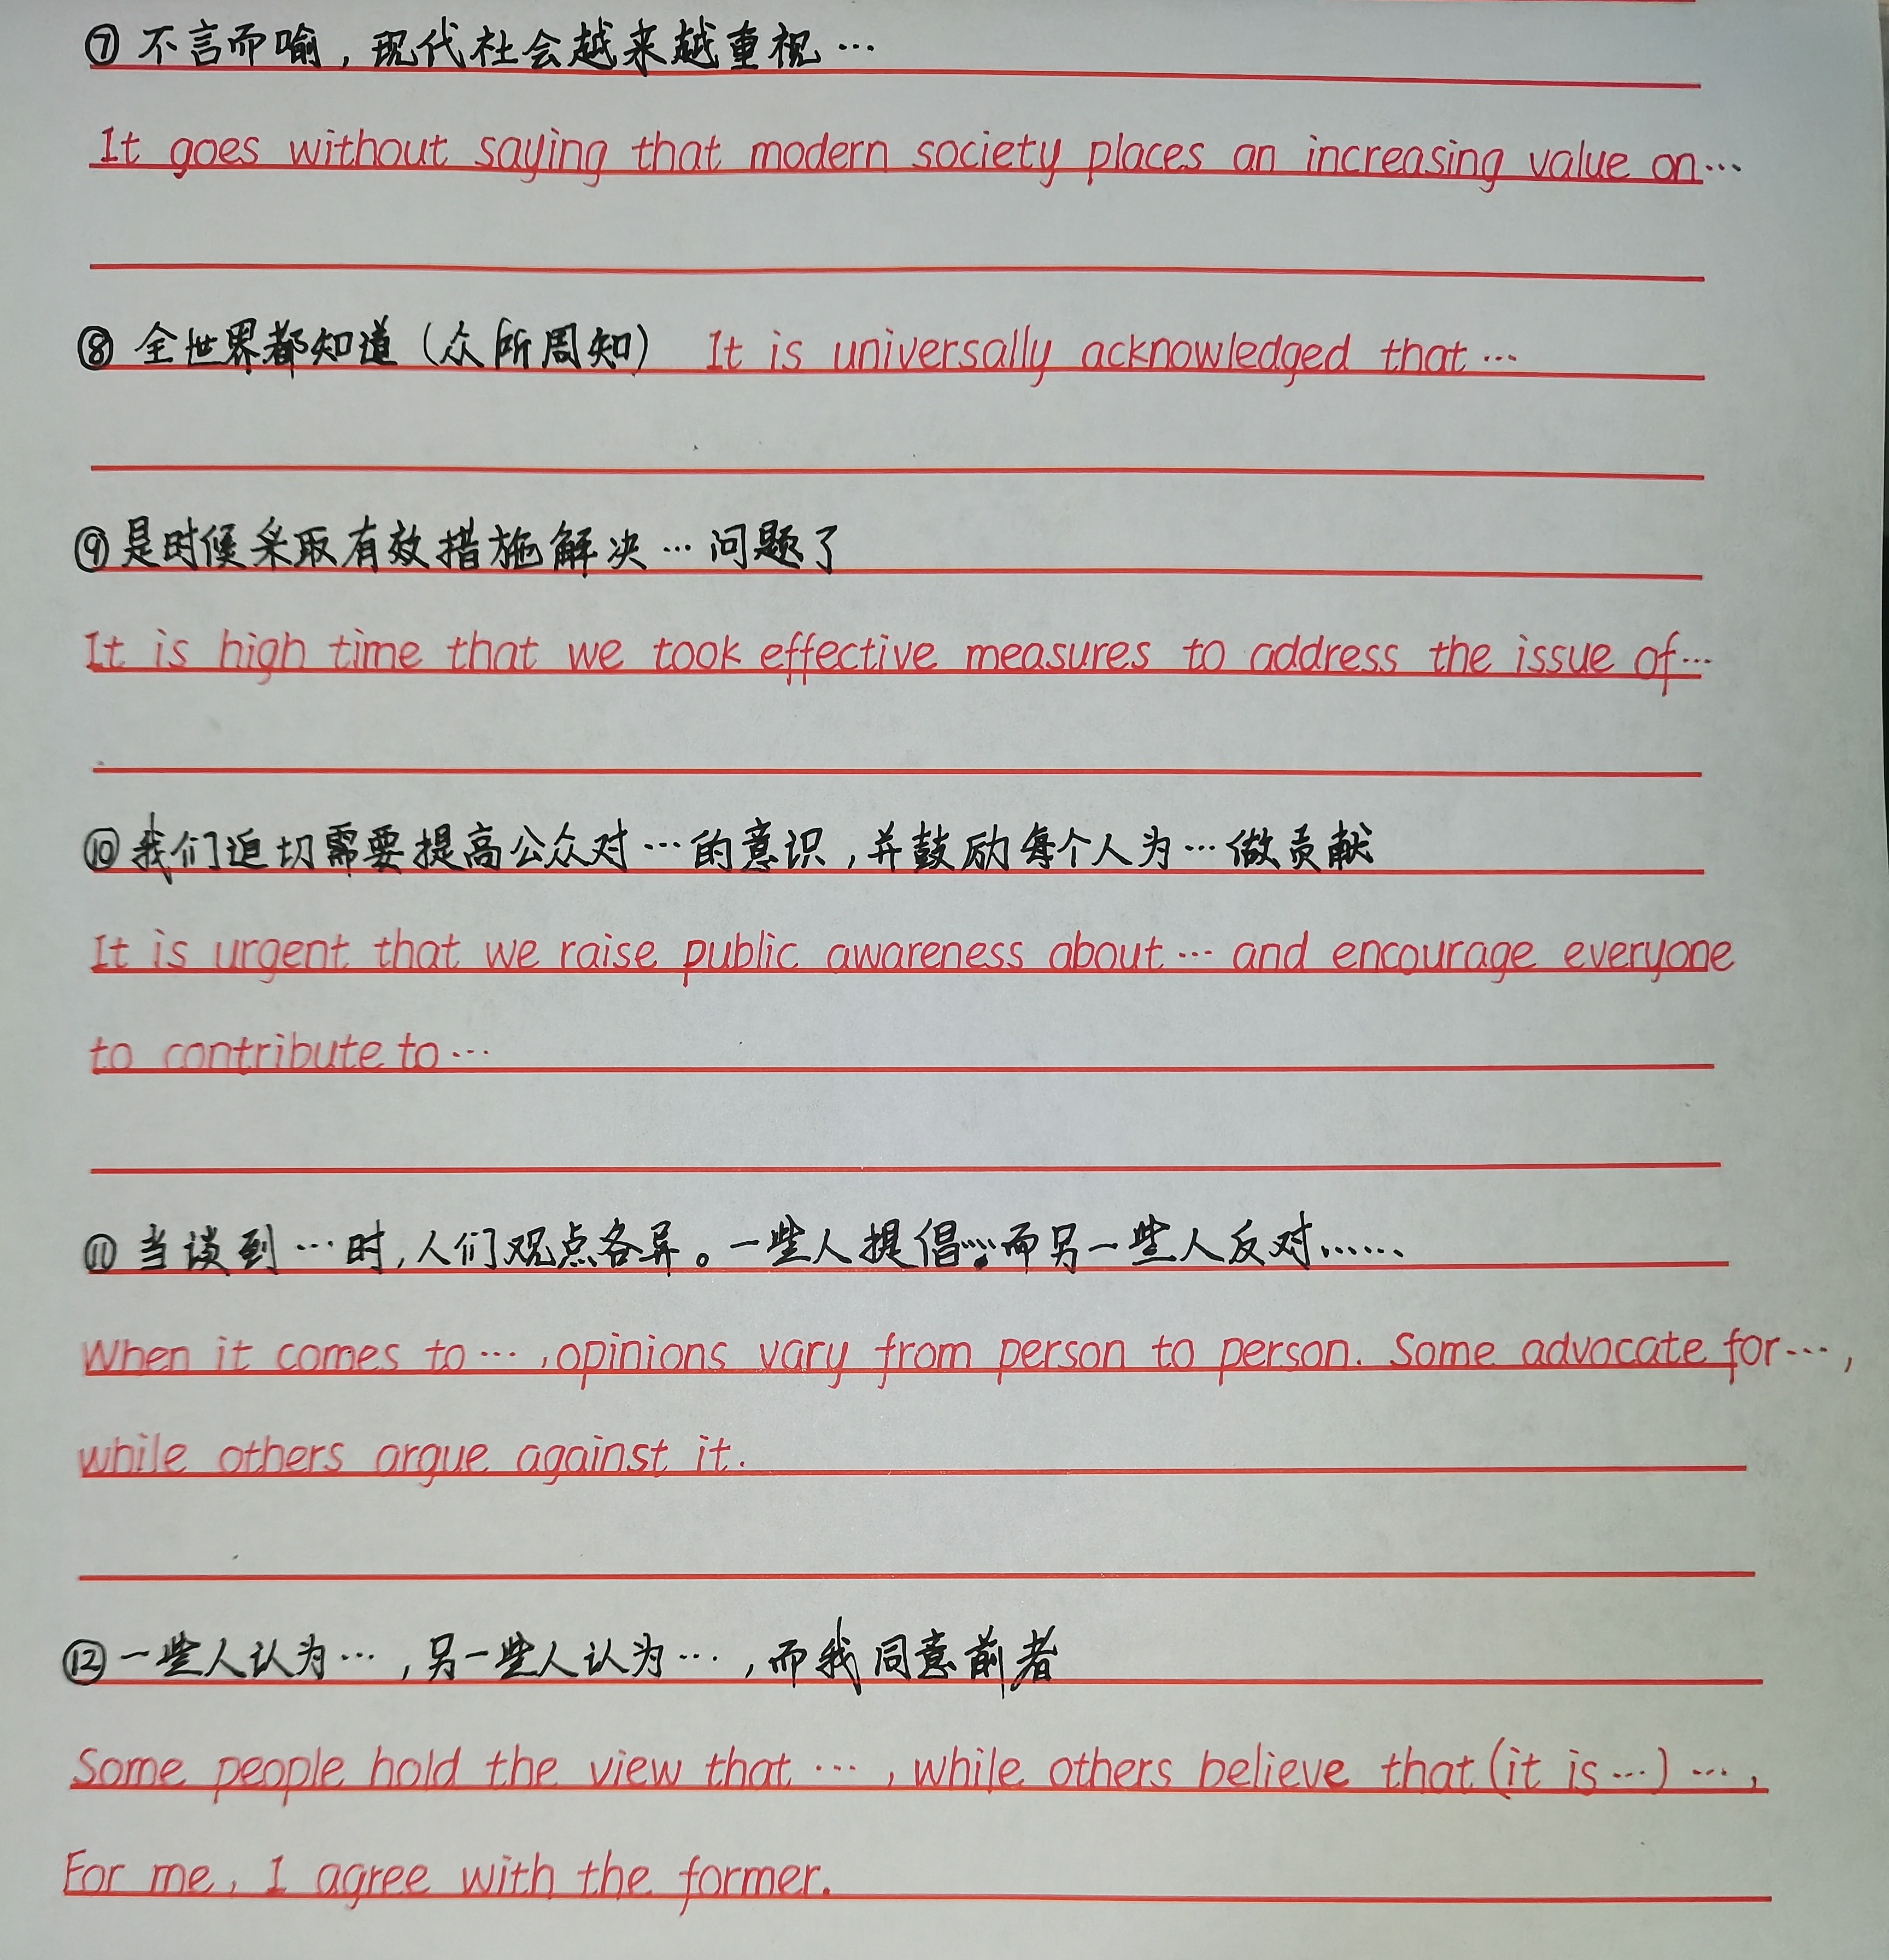 ⑦不言而喻，现代社会越来越重视…
It goes without saying that modern society places an increasing value on…
⑧全世界都知道（众所周知） It is universally acknowledged that…
⑨是时候采取有效措施解决…问题了
It is high time that we took effective measures to address the issue of…
⑩我们迫切需要提高公众对…的意识，并鼓励每个人为…做贡献
It is urgent that we raise public awareness about… and encourage everyone
to contribute to…
⑪当谈到…时，人们观点各异。一些人提倡…而另一些人反对……
When it comes to… , opinions vary from person to person. Some advocate for…,
while others argue against it.
⑫一些人认为…，另一些人认为…，而我同意前者
Some people hold the view that … , while others believe that (it is…) …,
For me, I agree with the former.